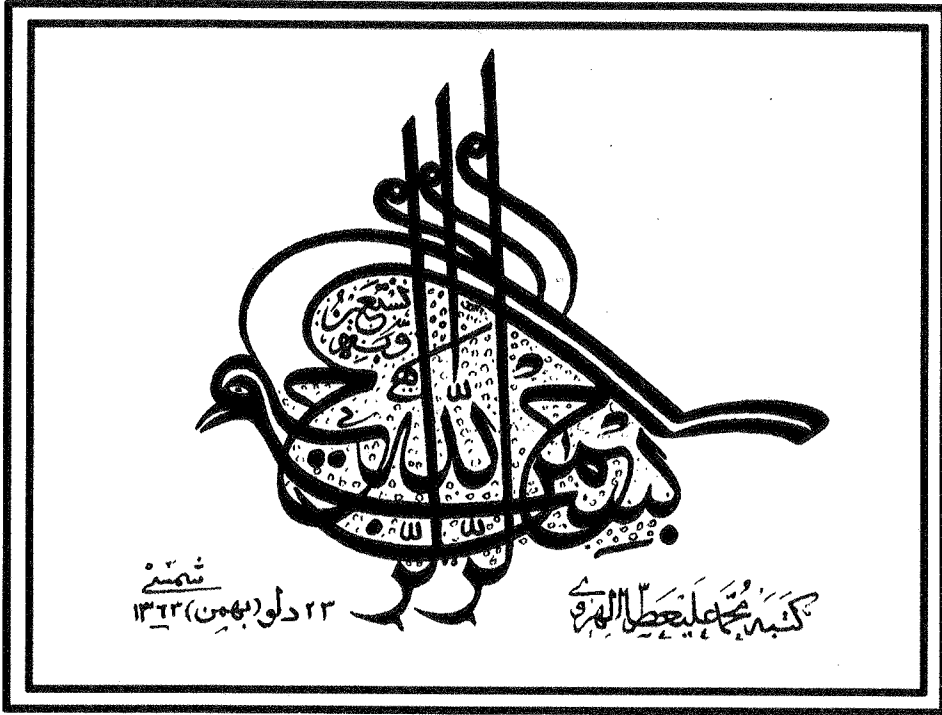 بسم الله الرحمن الرحيم
وبه نستعين
كتبه محمد علي عطار الهروي
۲۳ دلو (بهمن) ۱۳۶۳
شمسی